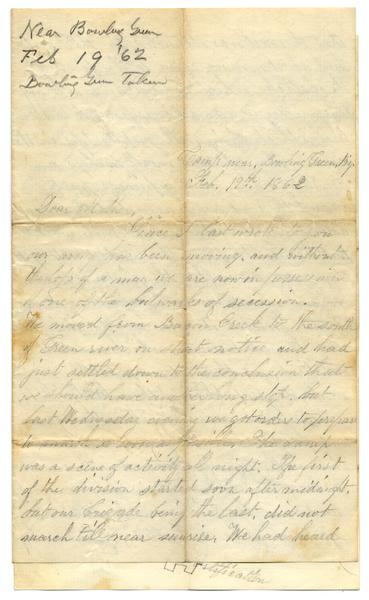 Near Bowling Green
Feb 19 '62
Bowling Green Taken
Camp near, Bowling Green, Ky.
Feb. 19th, 1862
Dear
Since I last wrote to you
our army has been moving, and without
the loss of a man we are now in possession
of one of the bulwarks of secession.
We moved from Bacon Creek to the south
of Green river on short notice, and had
just settled down to the conclusion that
we should have another long stop, but
last Wednesday evening we got orders to prepare
to march as soon as possible. The camp
was a scene of activity all night. The first
of the division started soon after midnight,
but our brigade being the last, did not
march till near sunrise. We had heard